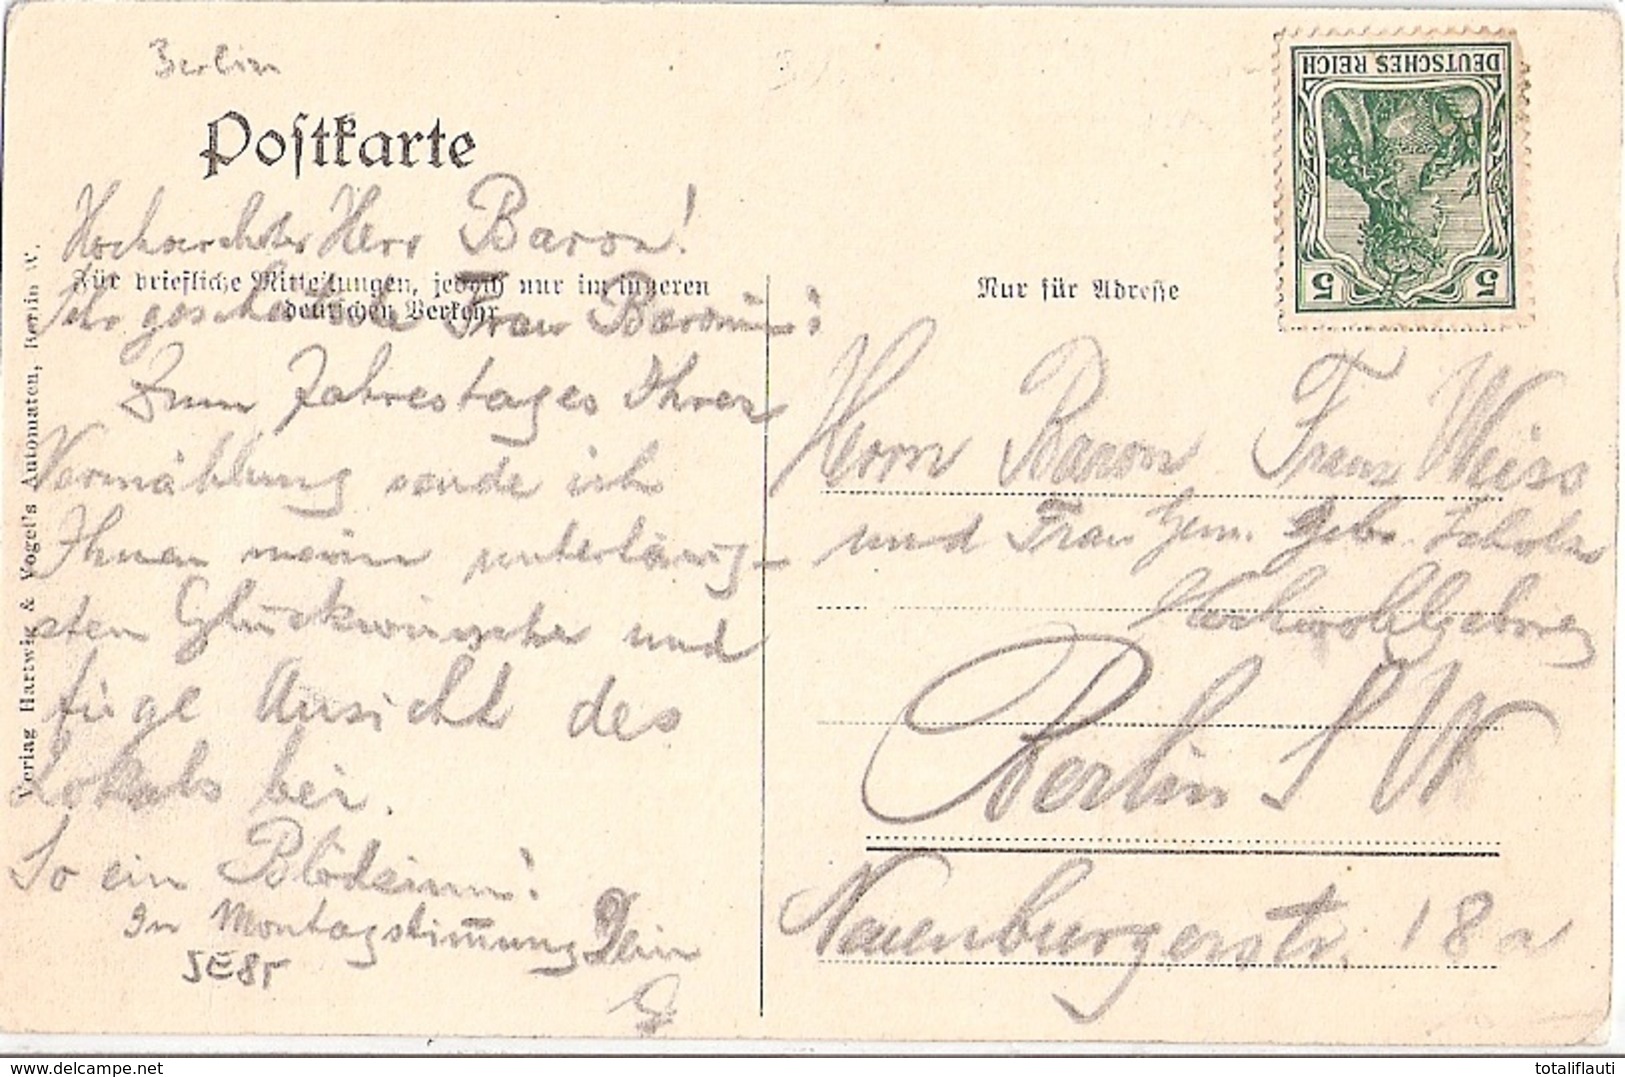 Berlin
Postkarte
Hochverehrter Herr Baron!
Für briefliche Mitteilungen, jedoch nur im inneren
deutschen Verkehr
Sehr geschätzte Frau Baronin!
Zum Jahrestages Ihrer
Vermählung sende ich
Ihnen meine untertänig-
sten Glückwünsche und
füge Ansicht des
Lokals bei.
So ein Blödsinn!
In Montagstimmung Dein
Verlag Hartwig & Vogel's Automaten, Berlin W.
DEUTSCHES REICH
5 5
Nur für Adresse
Herrn Baron Franz Weiss
und Frau Gem. geb. Scholz
Hochwohlgeboren
Berlin SW
Neuenburgerstr. 18a
delcampe.net
totaliflauti